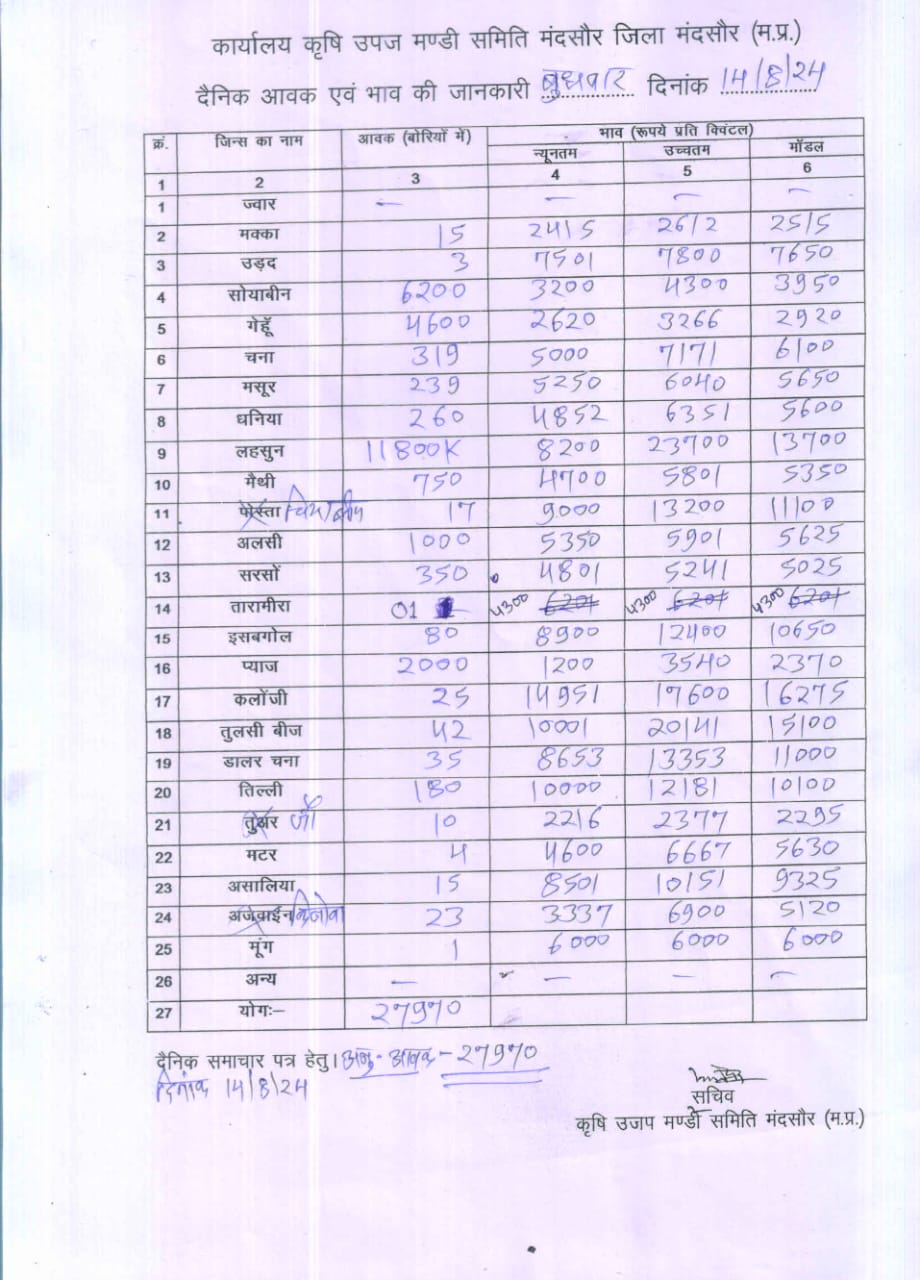 कार्यालय कृषि उपज मण्डी समिति मंदसौर जिला मंदसौर (म.प्र.)
दैनिक आवक एवं भाव की जानकारी बुधवार दिनांक 14/8/24
क्र. जिन्स का नाम आवक (बोरियों में) भाव (रूपये प्रति क्विंटल)
न्यूनतम उच्चतम मॉडल
1 2 3 4 5 6
1 ज्वार — — — —
2 मक्का 15 2415 2612 2515
3 उड़द 3 7501 7800 7650
4 सोयाबीन 6200 3200 4300 3950
5 गेहूँ 4600 2620 3266 2920
6 चना 319 5000 7171 6100
7 मसूर 239 5250 6040 5650
8 धनिया 260 4852 6351 5600
9 लहसुन 11800K 8200 23700 13700
10 मैथी 750 4700 5801 5350
11 पोस्ता 17 9000 13200 11100
12 अलसी 1000 5350 5901 5625
13 सरसों 350 4801 5241 5025
14 तारामीरा 01 4300 6201 4300 6201 4300 6201
15 इसबगोल 80 8900 12400 10650
16 प्याज 2000 1200 3540 2370
17 कलोंजी 25 14951 17600 16275
18 तुलसी बीज 42 10001 20141 15100
19 डालर चना 35 8653 13353 11000
20 तिल्ली 180 10000 12181 10100
21 तुअर जौ 10 2216 2377 2295
22 मटर 4 4600 6667 5630
23 असालिया 15 8501 10151 9325
24 अजवाईन किनोवा 23 3337 6900 5120
25 मूंग 1 6000 6000 6000
26 अन्य — — — —
27 योगः— 27970
दैनिक समाचार पत्र हेतु। अनु. आवक - 27970
दिनांक 14/8/24
सचिव
कृषि उजप मण्डी समिति मंदसौर (म.प्र.)